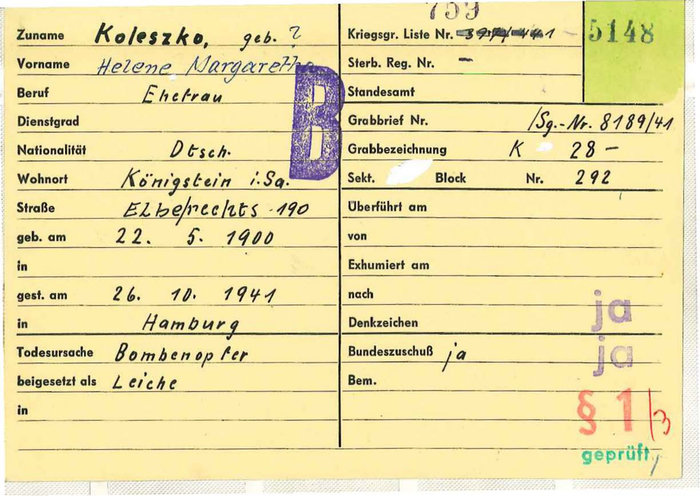 759
Zuname Koleszko, geb. ?
Vorname Helene Margarethe
Beruf Ehefrau
Dienstgrad
Nationalität Dtsch.
Wohnort Königstein i. Sa.
Straße Elbe/rechts 190
geb. am 22. 5. 1900
in
gest. am 26. 10. 1941
in Hamburg
Todesursache Bombenopfer
beigesetzt als Leiche
in
B
Kriegsgr. Liste Nr.
5148
Sterb. Reg. Nr. –
Standesamt
Grabbrief Nr. /Sg.-Nr. 8189/41
Grabbezeichnung K 28 –
Sekt. Block Nr. 292
Überführt am
von
Exhumiert am
nach
Denkzeichen
Bundeszuschuß ja
Bem.
ja
ja
§ 1/3
geprüft